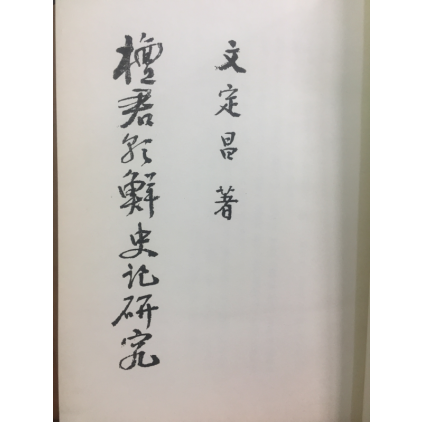 文定昌 著
檀君朝鮮史記研究